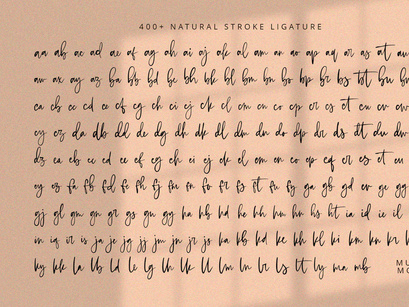 400+ NATURAL STROKE LIGATURE
aa ab ac ad ae af ag ah ai aj ak al am an ao ap aq ar as at au
aw ax ay az ba bb bd be bh bk bl bm bn bo bp br bs bt bu
ca cb cc cd ce cf cg ch ci cj ck cl cm cn co cp cr cs ct cu cv
cy cz da db dd de dg dh dk dl dm dn do dp dr ds dt du
ea eb ec ed ee ef eg eh ei ej ek el em en eo ep er es et eu
ey ez fa fb fd fe fh fj fm fn fo fr fs ft fu fy ga gb gd ge
gj gl gm gn gr gs gu gy ha hb hd he hh hm hn hs ht ia id ie il
in iq ir is ja je jg jj jm jn jr js ka kb kd ke kh kl km kn
ky la lb ld le lg lh lk ll lm ln lr ls lt ly ma mb